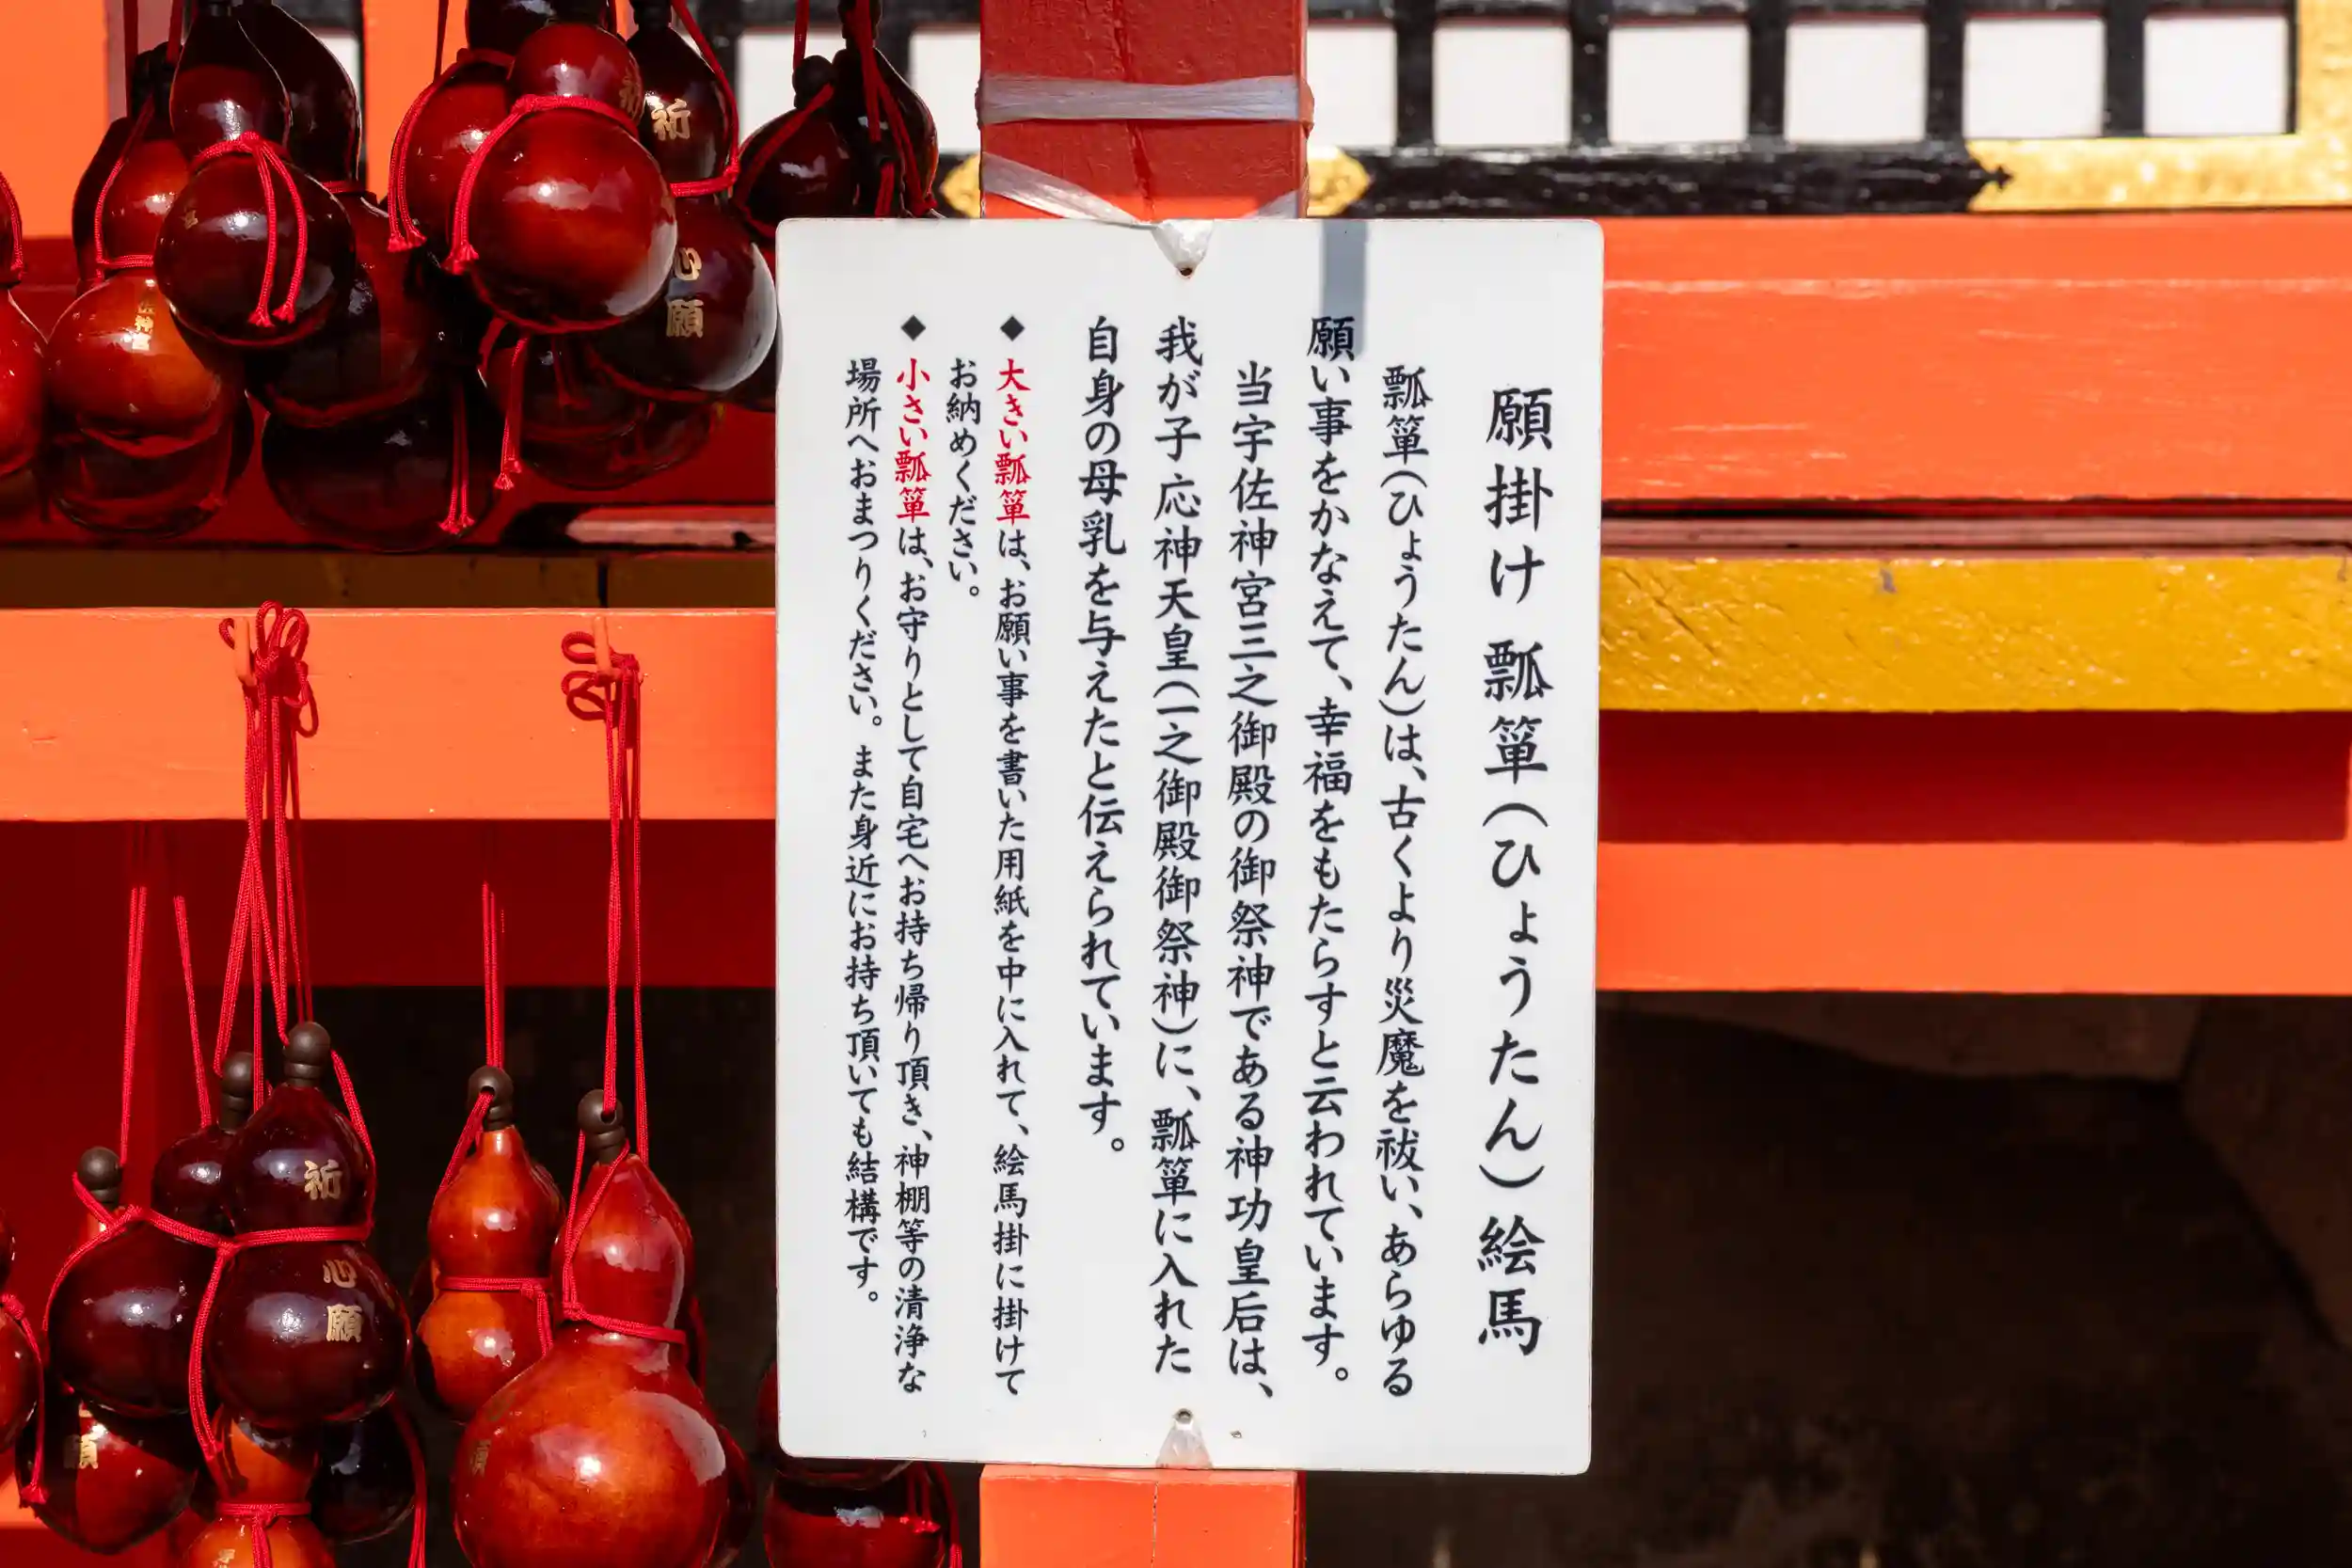 願掛け 瓢箪(ひょうたん)絵馬
瓢箪(ひょうたん)は、古くより災魔を祓い、あらゆる
願い事をかなえて、幸福をもたらすと云われています。
当宇佐神宮三之御殿の御祭神である神功皇后は、
我が子応神天皇(一之御殿御祭神)に、瓢箪に入れた
自身の母乳を与えたと伝えられています。
◆大きい瓢箪は、お願い事を書いた用紙を中に入れて、絵馬掛に掛けて
お納めください。
◆小さい瓢箪は、お守りとして自宅へお持ち帰り頂き、神棚等の清浄な
場所へおまつりください。また身近にお持ち頂いても結構です。
祈
心
願
祈
心
願
願